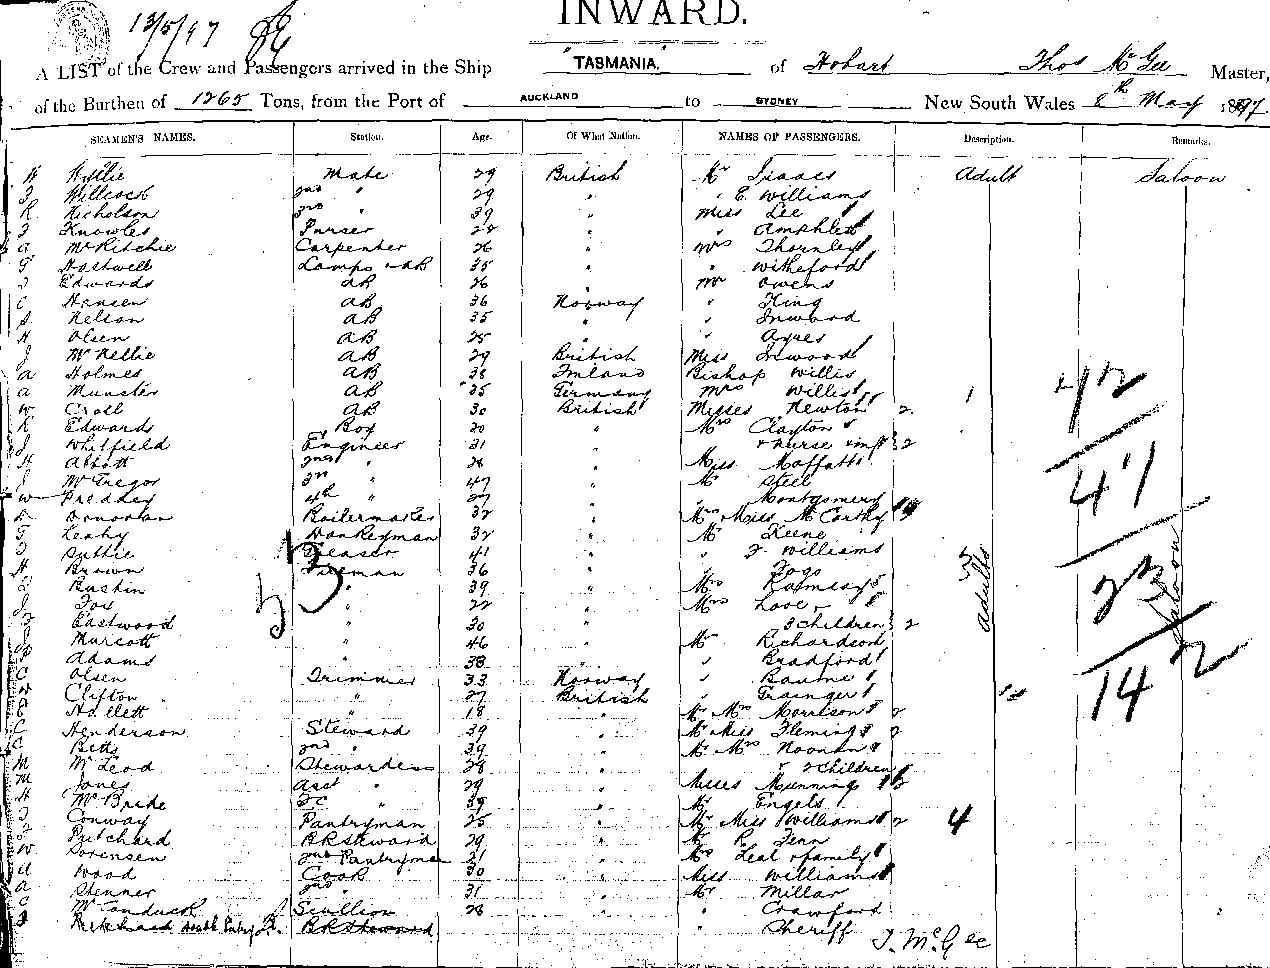 13/5/97
INWARD.
A LIST of the Crew and Passengers arrived in the Ship "TASMANIA." of Hobart Thos McGee Master,
of the Burthen of 1265 Tons, from the Port of AUCKLAND to SYDNEY New South Wales 8th May 1897.
SEAMEN'S NAMES. Station. Age. Of What Nation. NAMES OF PASSENGERS. Description. Remarks.
Wyllie Mate 29 British Mr Isaacs Adult Saloon
Willcock 2nd " 29 " " E. Williams
R Nicholson 3rd " 39 " Miss Lee
Knowles Purser 28 " " Amphlett
A McRitchie Carpenter 26 " Mrs Thornley
Hastwell Lamps & AB 35 " " Witheford
Edwards AB 26 " Mr Owens
C Hansen AB 36 Norway " King
Nelson AB 35 " " Inward
H Olsen AB 25 " " Ayres
J McNellie AB 29 British Miss Inwood
A Holmes AB 38 Finland Bishop Willis
A Munster AB 35 Germany Mrs Willis 1
W Croll AB 30 British Misses Newton 2
Edwards Boy 20 " Mrs Clayton
J Whitfield Engineer 31 " & nurse & inft 2
H Abbott 2nd " 28 " Miss Moffatt
J McGregor 3rd " 47 " Mr Steel
W Preddey 4th " 27 " " Montgomery
Donovan Boilermaker 32 " Mrs & Miss McCarthy
Leahy Donkeyman 32 " Mr Keene
Duthie Greaser 41 " " J. Williams
H Brown Fireman 36 " " Fogo
Buskin " 39 " Mrs Ramsay
J Fox " 22 " Mrs Love &
Eastwood " 30 " 3 children 2
Murcott " 46 " Mr Richardson
Adams " 38 " " Bradford
C Olsen Trimmer 33 Norway " Baume
Clifton " 27 British " Grainger
Hallett " 18 " Mr Mrs Morrison 2
C Henderson Steward 39 " Mr Miss Fleming 2
C Betts 2nd " 39 " Mr Mrs Noonan
M McLeod Stewardess 28 " & 2 children
M Jones Asst " 29 " Misses Munnings
H McBride " 39 " Mr Engels
Conway Pantryman 25 " Mr Miss Williams 2 4
Pritchard BR Steward 29 " Mr P. Fenn
W Sorensen 2nd Pantryman 21 " Mrs Leal & family
A Wood Cook 30 " Miss Williams
A Stenner 2nd " 31 " Mr Millar
Scullion 28 " " Crawford
BR Steward " Sheriff
T. McGee
53
Adults
Saloon
42
41
23
2
14